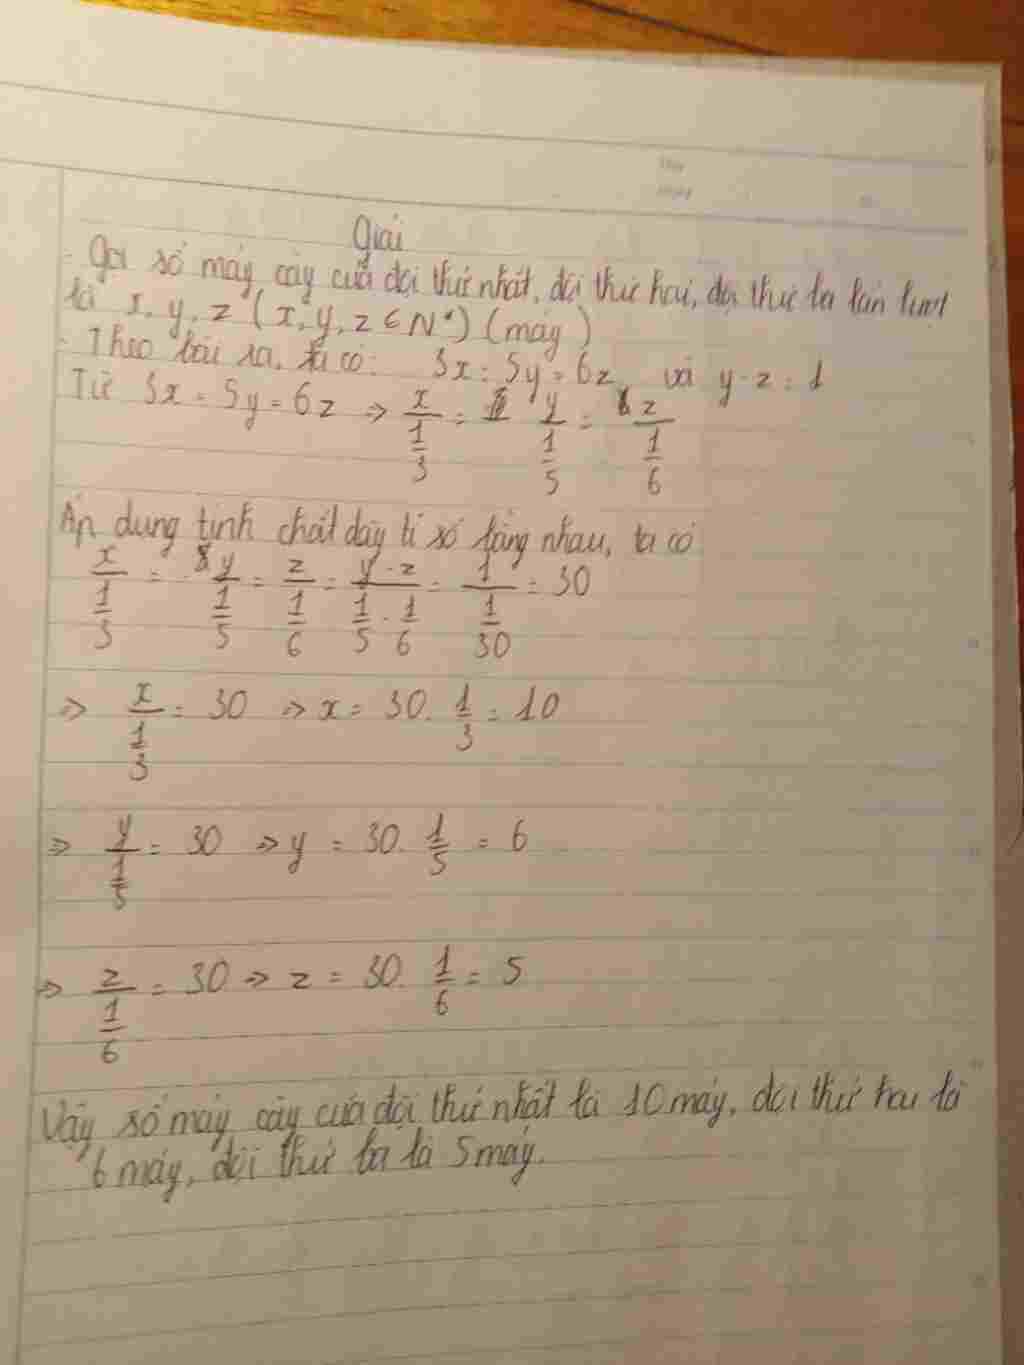 Giải
- Gọi số máy cày của đội thứ nhất, đội thứ hai, đội thứ ba lần lượt
là x, y, z (x, y, z ∈ N*) (máy)
- Theo bài ra, ta có: 3x = 5y = 6z và y - z = 1
Từ 3x = 5y = 6z => x/(1/3) = y/(1/5) = z/(1/6)
Áp dụng tính chất dãy tỉ số bằng nhau, ta có
x/(1/3) = y/(1/5) = z/(1/6) = (y - z)/(1/5 - 1/6) = 1/(1/30) = 30
=> x/(1/3) = 30 => x = 30. 1/3 = 10
=> y/(1/5) = 30 => y = 30. 1/5 = 6
=> z/(1/6) = 30 => z = 30. 1/6 = 5
Vậy số máy cày của đội thứ nhất là 10 máy, đội thứ hai là
6 máy, đội thứ ba là 5 máy.